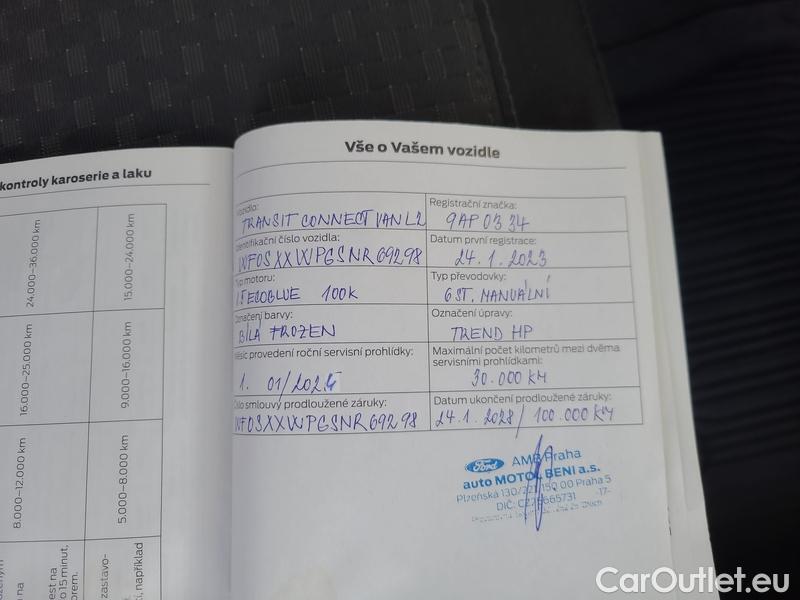 kontroly karoserie a laku
24.000–36.000 km
15.000–24.000 km
16.000–25.000 km
9.000–16.000 km
8.000–12.000 km
5.000–8.000 km
o 15 minut,
zastavo-
, například
Vše o Vašem vozidle
Vozidlo:
TRANSIT CONNECT VAN L2
Registrační značka:
9AP 0334
Identifikační číslo vozidla:
WF0SXXWPGSNR69298
Datum první registrace:
24.1.2023
Typ motoru:
ECOBLUE 100k
Typ převodovky:
6 ST. MANUÁLNÍ
Označení barvy:
BÍLÁ FROZEN
Označení úpravy:
TREND HP
Měsíc provedení roční servisní prohlídky:
1. 01/
Maximální počet kilometrů mezi dvěma
servisními prohlídkami:
30.000 KM
Číslo smlouvy prodloužené záruky:
WF0SXXWPGSNR69298
Datum ukončení prodloužené záruky:
24.1.2028/100.000 KM
Ford
AMB Praha
auto MOTOL BENI a.s.
Plzeňská 130/221, 150 00 Praha 5
DIČ:
-17-
CarOutlet.eu